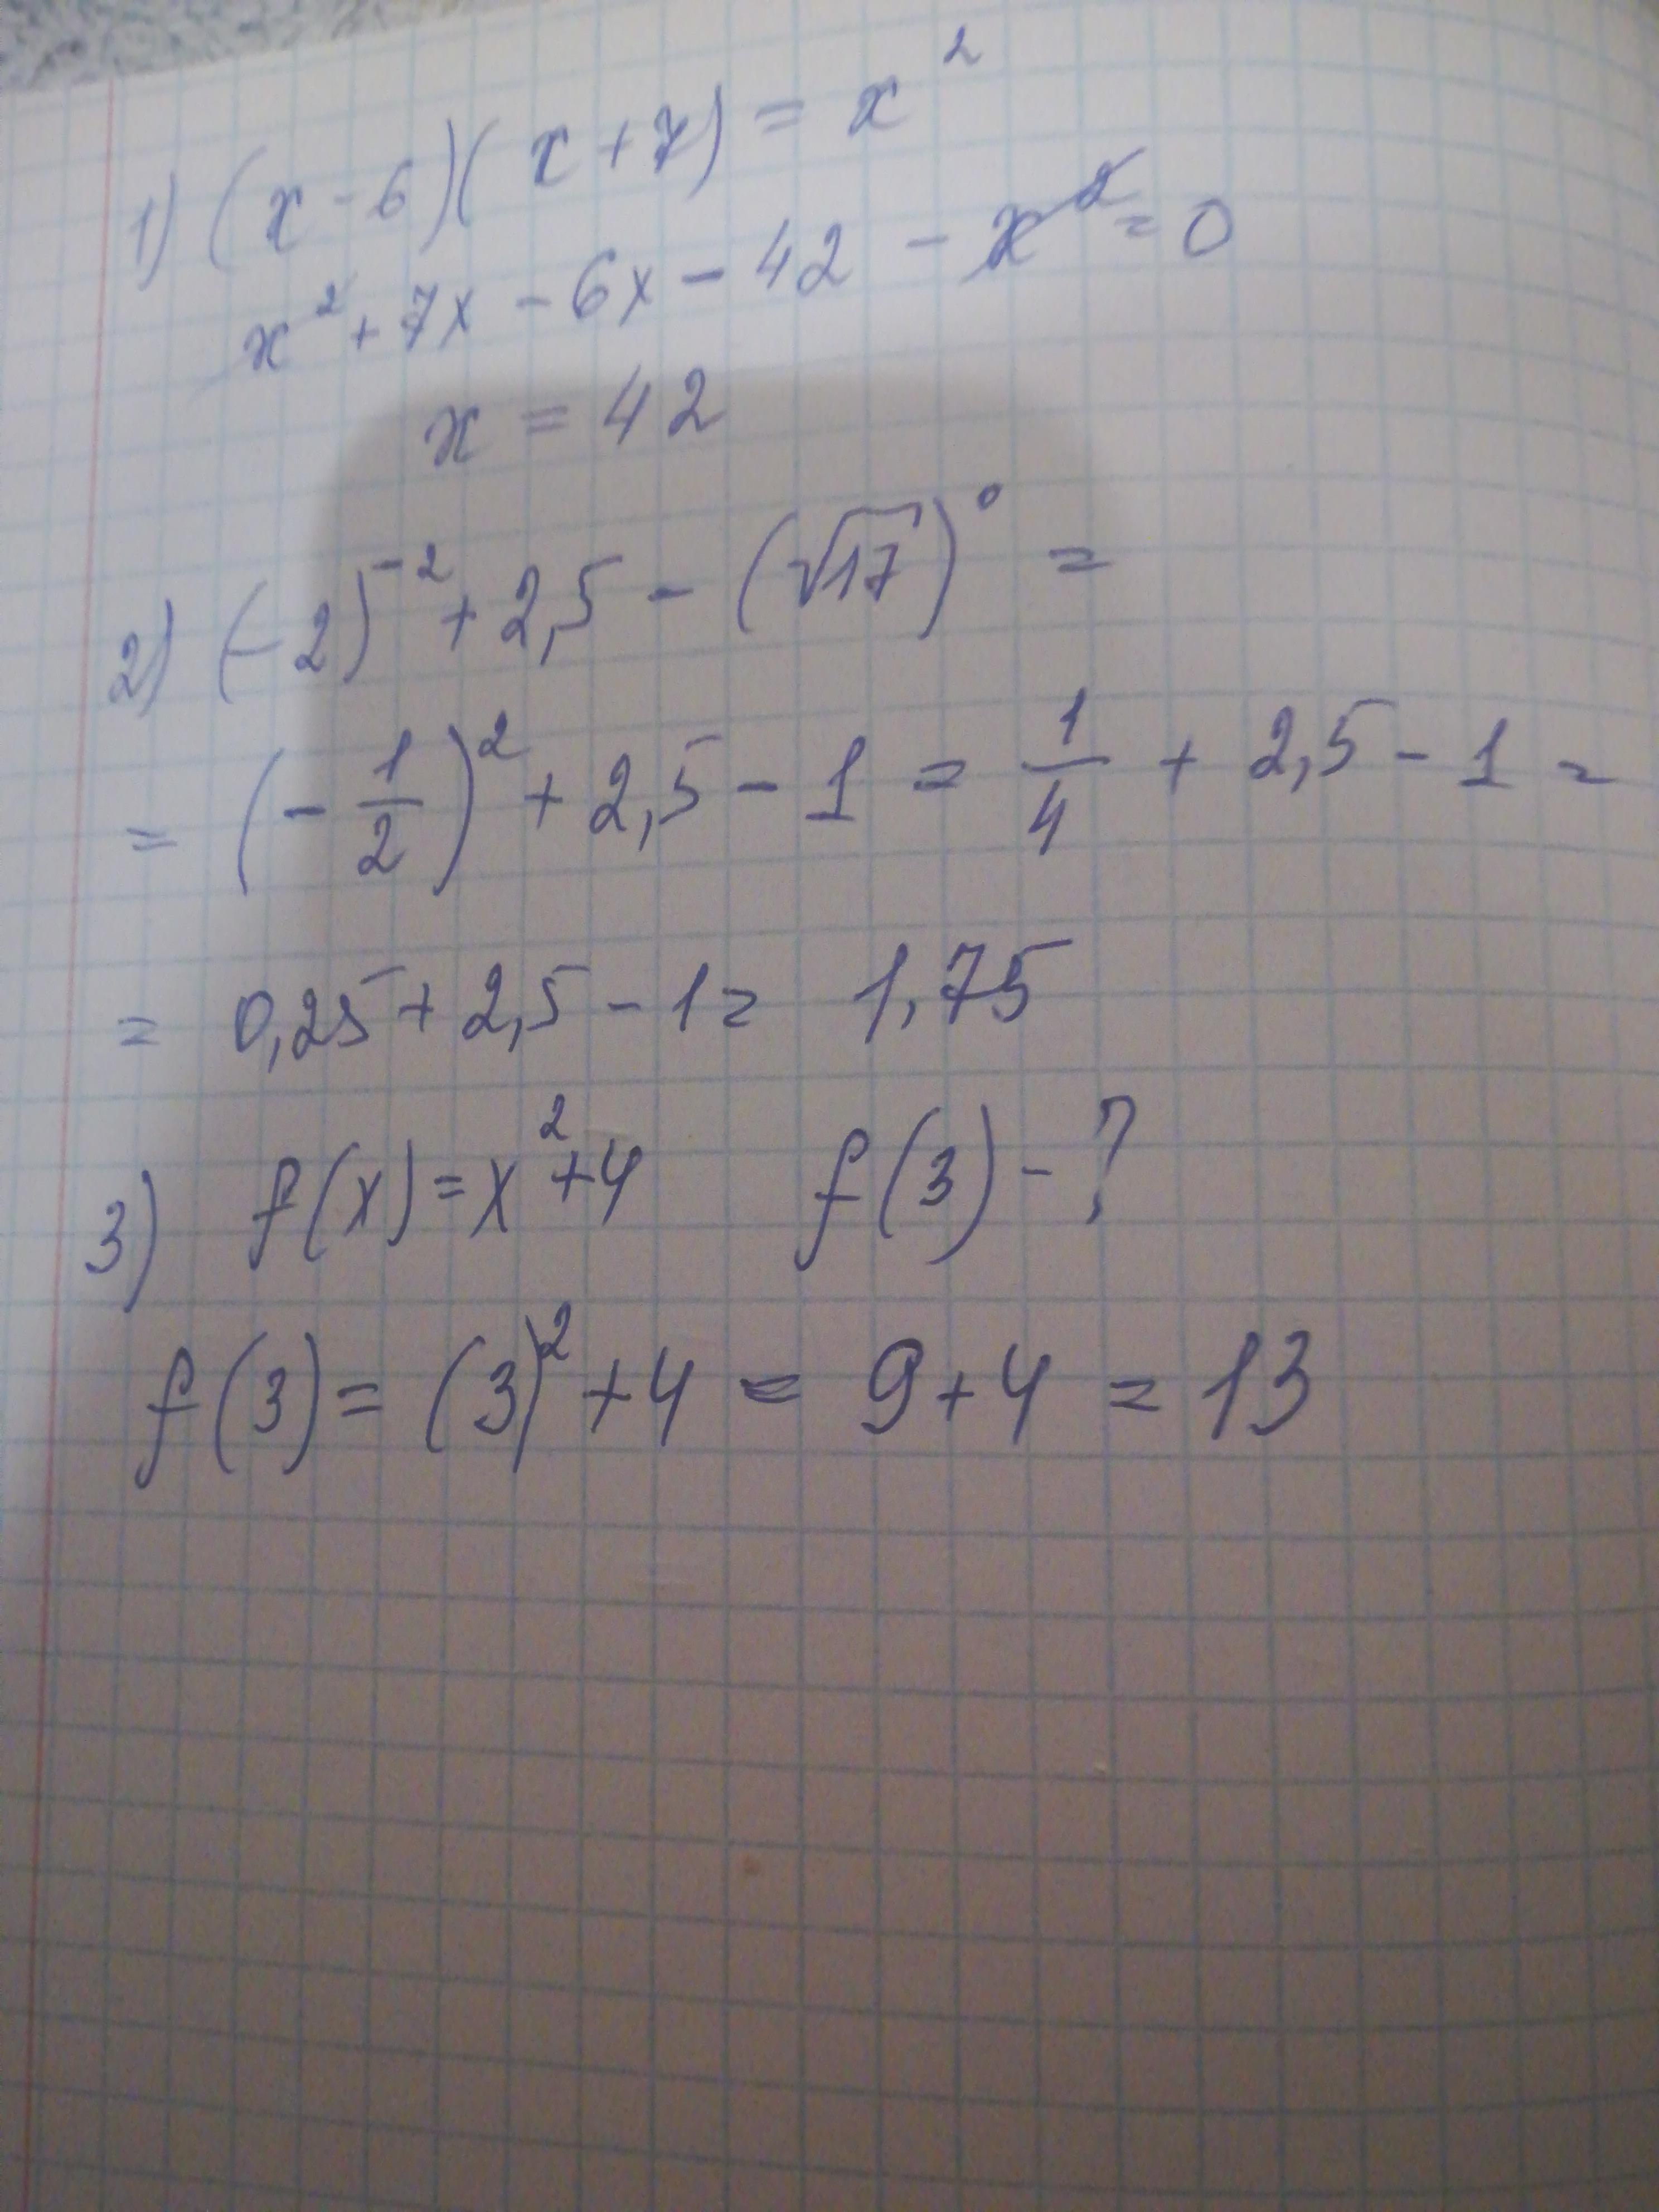 1) (x - 6)(x + 7) = x²
x² + 7x - 6x - 42 - x² = 0
x = 42
2) (-2)⁻² + 2,5 - (√17)⁰ =
= (-1/2)² + 2,5 - 1 = 1/4 + 2,5 - 1 =
= 0,25 + 2,5 - 1 = 1,75
3) f(x) = x² + 4 f(3) - ?
f(3) = (3)² + 4 = 9 + 4 = 13